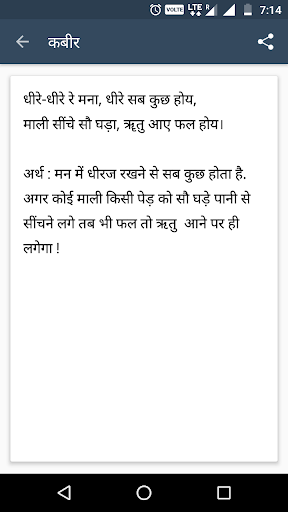 VOLTE LTE R 7:14
कबीर
धीरे-धीरे रे मना, धीरे सब कुछ होय,
माली सींचे सौ घड़ा, ॠतु आए फल होय।
अर्थ : मन में धीरज रखने से सब कुछ होता है.
अगर कोई माली किसी पेड़ को सौ घड़े पानी से
सींचने लगे तब भी फल तो ऋतु  आने पर ही
लगेगा !